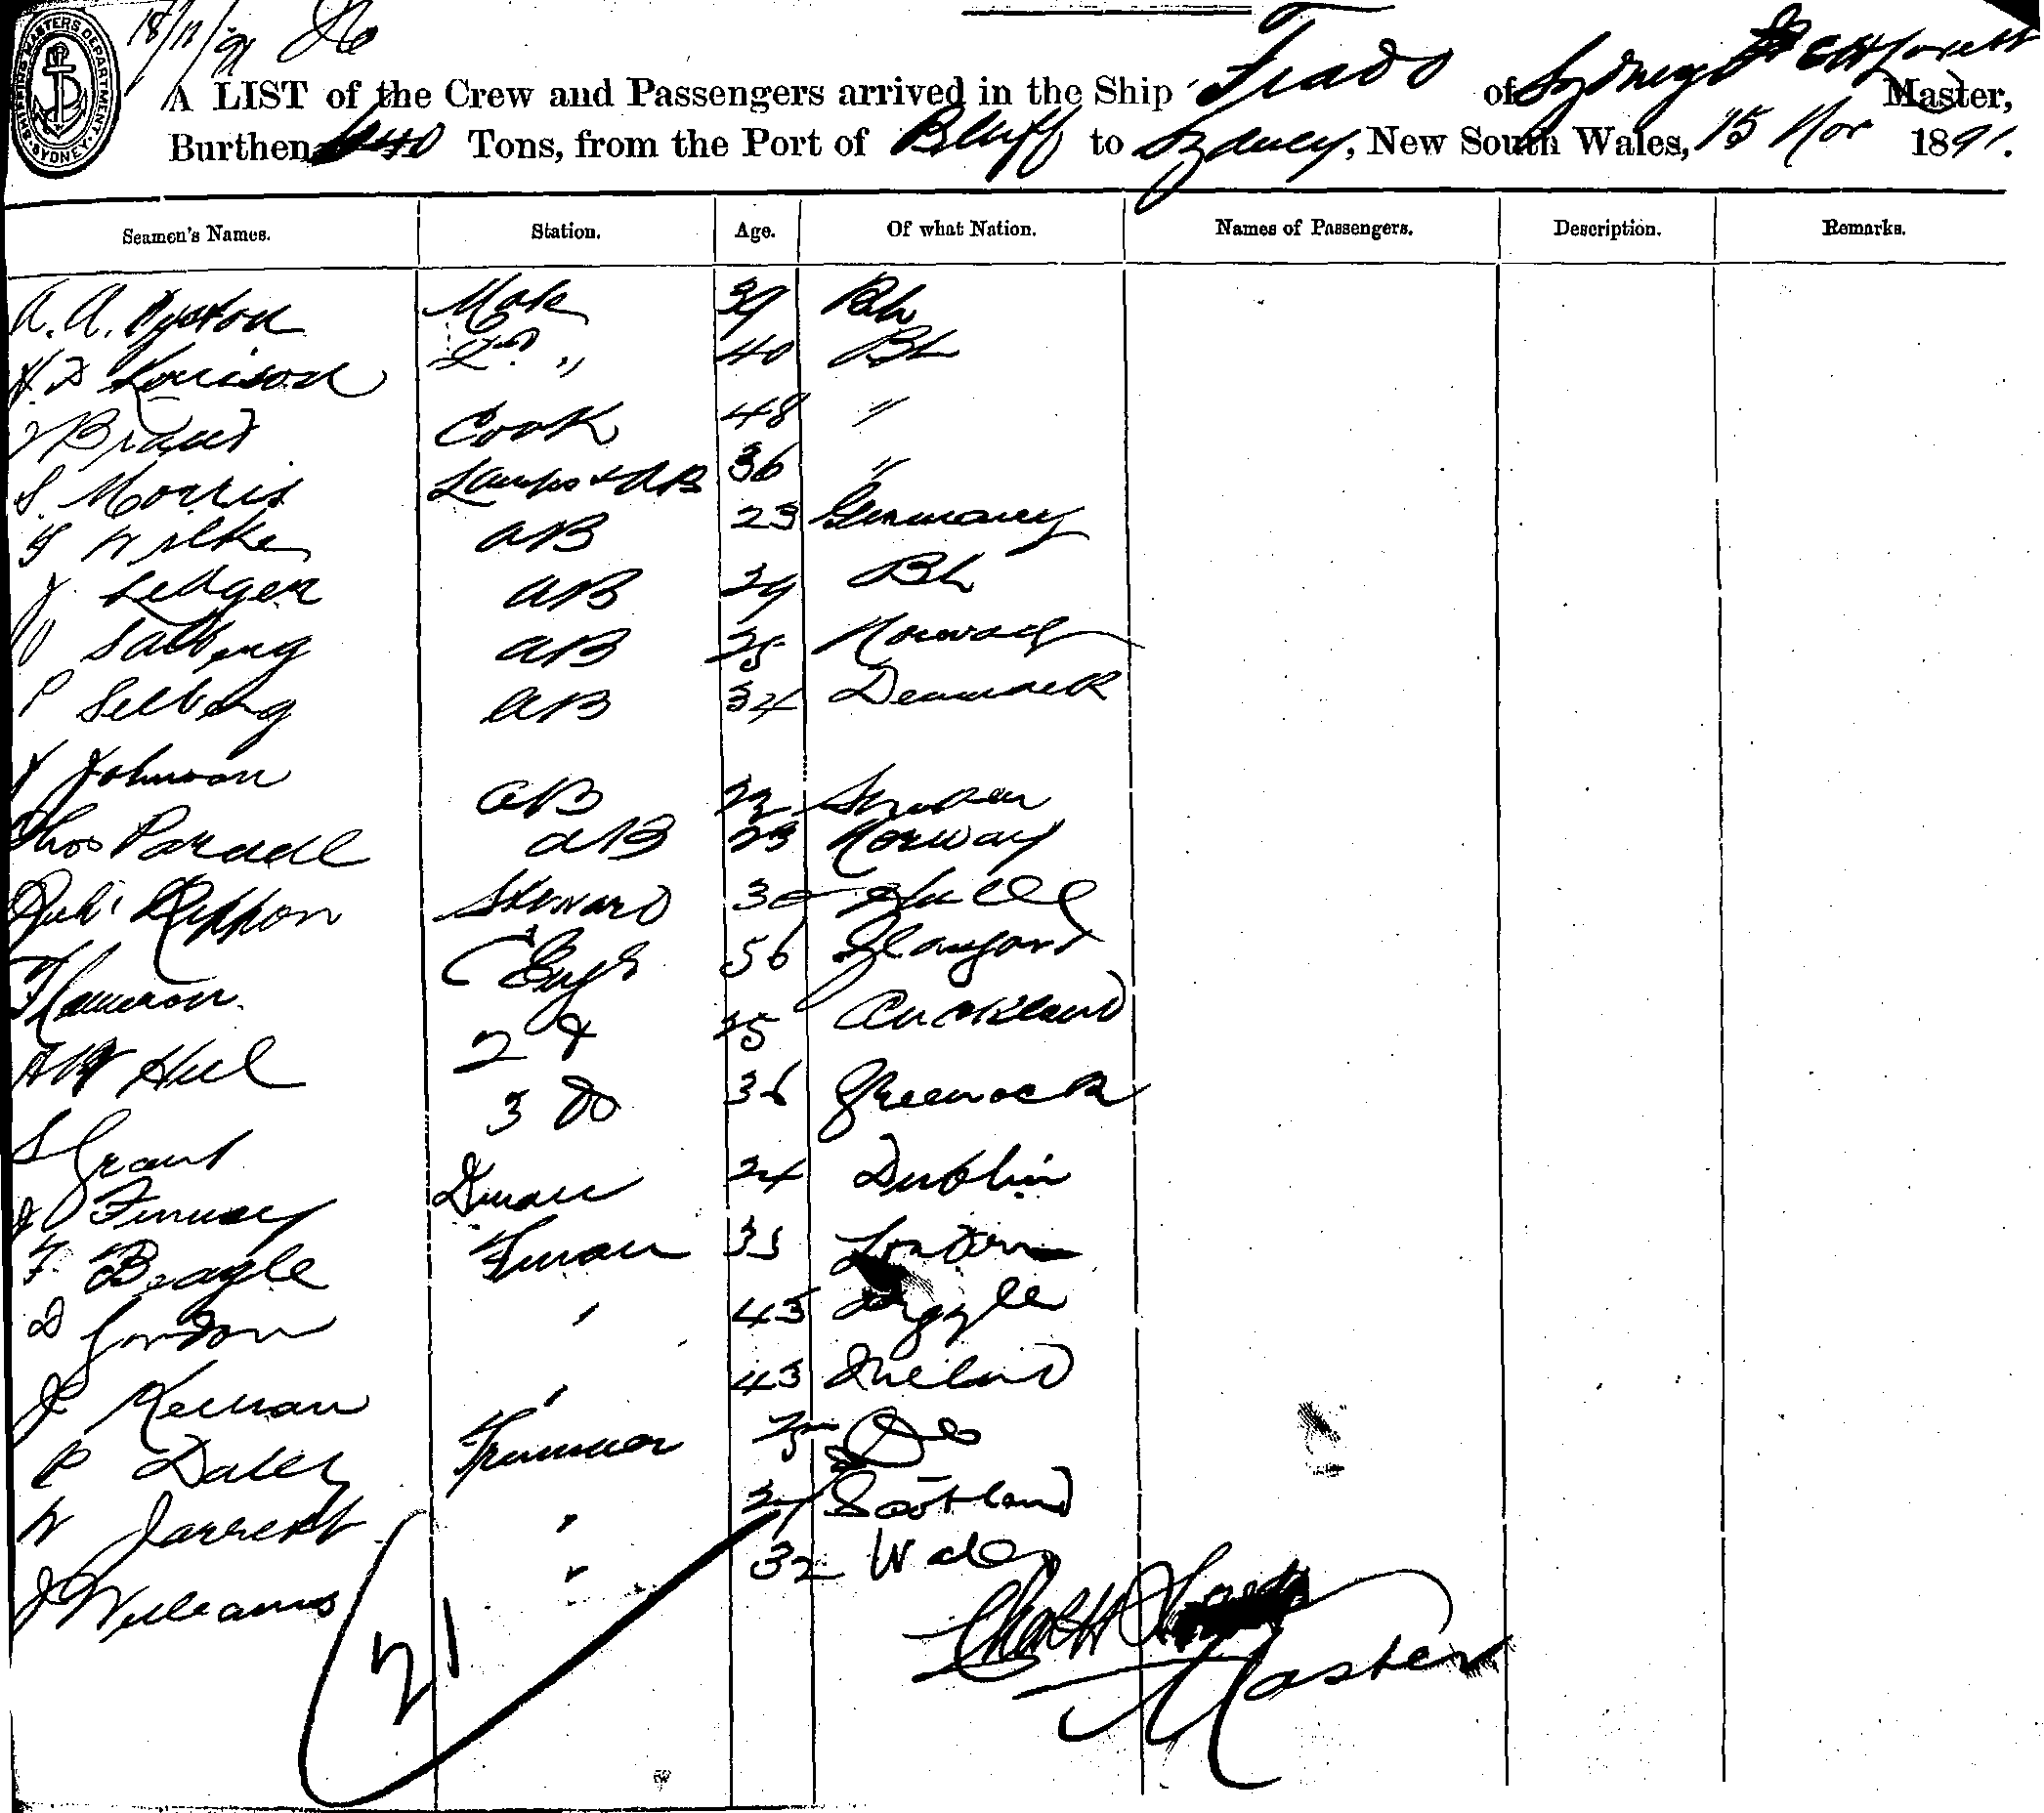 SHIPPING MASTERS DEPARTMENT SYDNEY
18/11/91
A LIST of the Crew and Passengers arrived in the Ship of Sydney Master,
Burthen 640 Tons, from the Port of Bluff to Sydney, New South Wales, 15 Nov 1891.
Seamen's Names. Station. Age. Of what Nation. Names of Passengers. Description. Remarks.
A. A. Mate 39 Bh
40 Bh
Cook 48 "
S. Morris Lamps & AB 36 "
Wilke AB 23 Germany
J. Ledger AB 29 Bh
Salberg AB 25 Norway
P Selberg AB 34 Denmark
J Johnson AB Sweden
Thos Parnell AB 23 Norway
Rippon Steward 30 Hull
Cameron C Engr 56 Glasgow
A W Hill 2 25 Auckland
S Grant 3 Do 36 Greenock
J Finney 24 Dublin
F. Beagle Fireman 35 London
D Gordon " 45 Argyle
J Keenan " 43 Ireland
P Daley Trimmer Do
W Jarrett " Scotland
J Williams " 32 Wales
21
Master